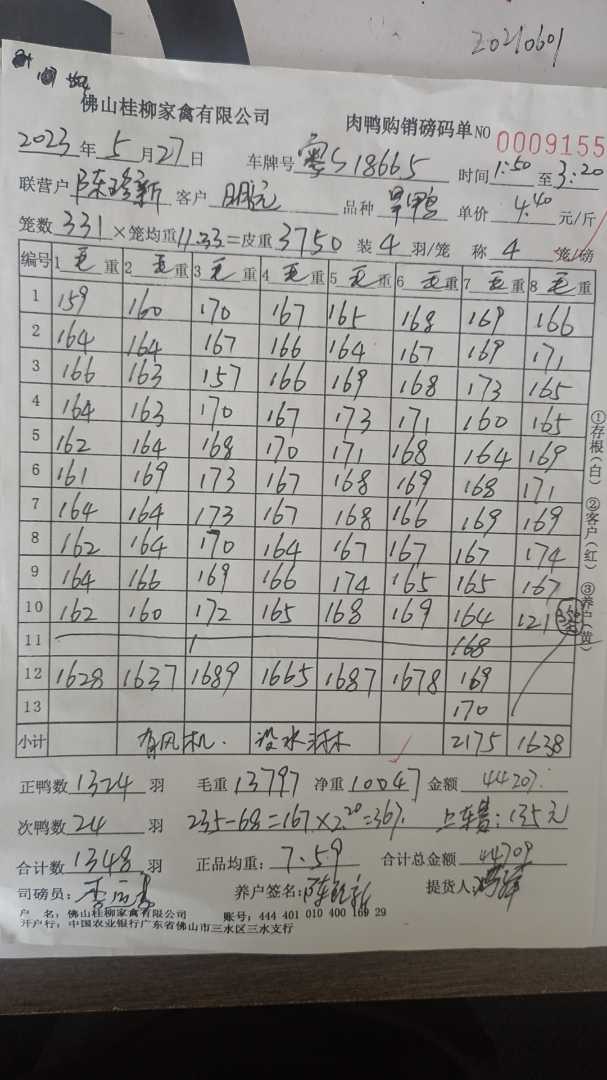 20210601
佛山桂柳家禽有限公司 肉鸭购销磅码单 NO 0009155
2023年5月27日 车牌号 粤S18665 时间 1:50 至 3:20
联营户 陈珍新 客户 明记 品种 旱鸭 单价 4.40 元/斤
笼数 331 ×笼均重 11.33 =皮重 3750 装 4 羽/笼 称 4 笼/磅
编号 1 毛重 2 毛重 3 毛重 4 毛重 5 毛重 6 毛重 7 毛重 8 毛重
1 159 160 170 167 165 168 169 166
2 164 164 167 166 164 167 169 171
3 166 163 157 166 169 168 173 165
4 164 163 170 167 173 171 160 165
5 162 164 168 170 171 168 164 169
6 161 169 173 167 168 169 168 171
7 164 164 173 167 168 166 169 169
8 162 164 170 164 167 167 167 174
9 164 166 169 166 174 165 165 167
10 162 160 172 165 168 169 164 121
11 168
12 1628 1637 1689 1665 1687 1678 169
13 170
小计 有风机. 没水淋 2175 1638
正鸭数 1324 羽 毛重 13797 净重 10047 金额 44207.
次鸭数 24 羽 235-68=167×2.20=367. 上车费:135元
合计数 1348 羽 正品均重: 7.59 合计总金额 44709
司磅员: 养户签名: 提货人:
户 名: 佛山桂柳家禽有限公司 账号: 444 401 010 400 169 29
开户行: 中国农业银行广东省佛山市三水区三水支行
①存根(白) ②客户(红) ③养户(黄)